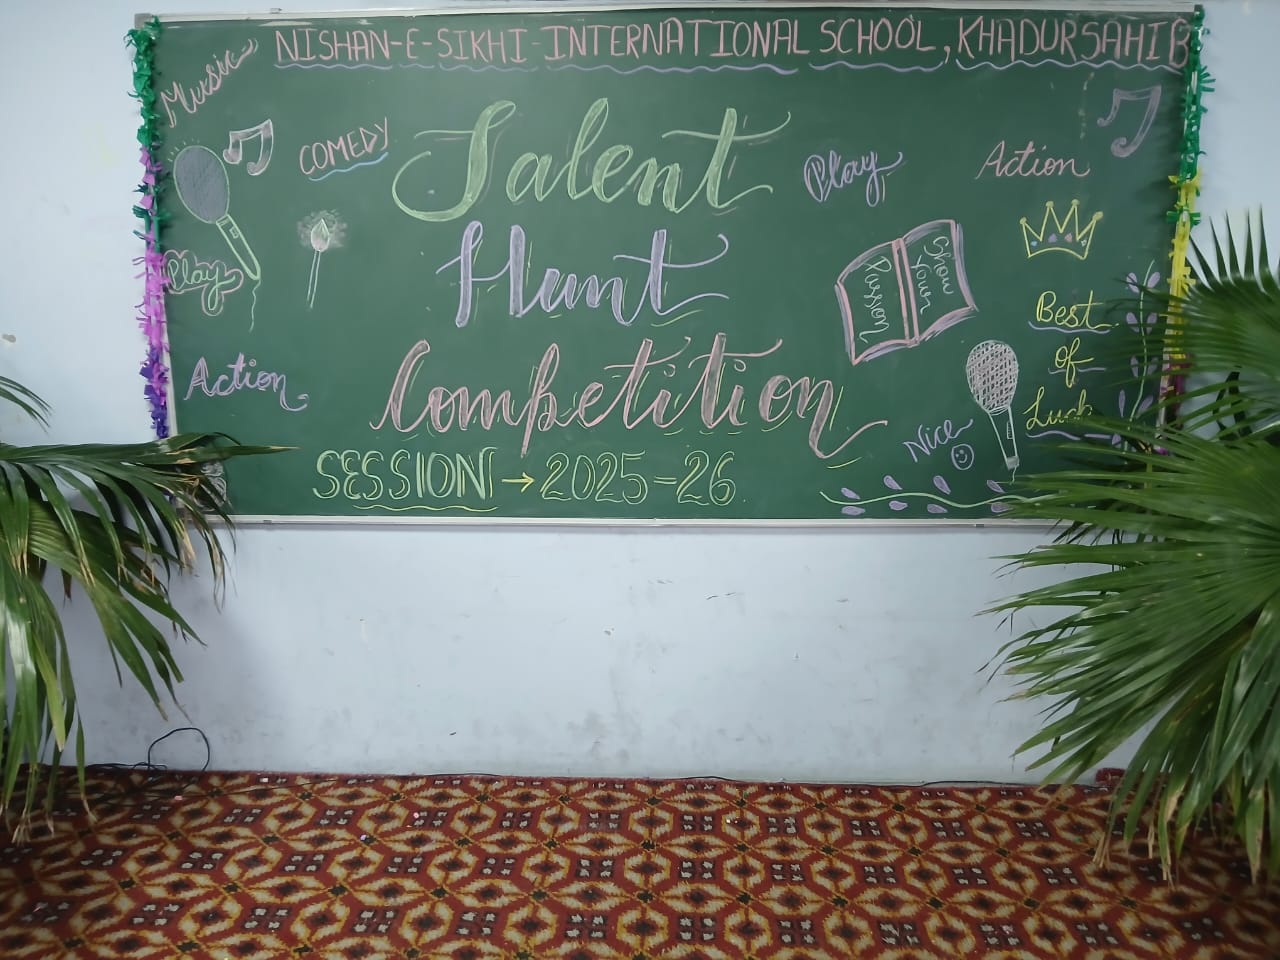 NISHAN-E-SIKHI-INTERNATIONAL SCHOOL, KHADUR SAHIB
Music
COMEDY
Talent
Play
Action
Hunt
Show Your
Passion
Play
Best
of
Luck
Action
Competition
Nice
SESSION → 2025-26